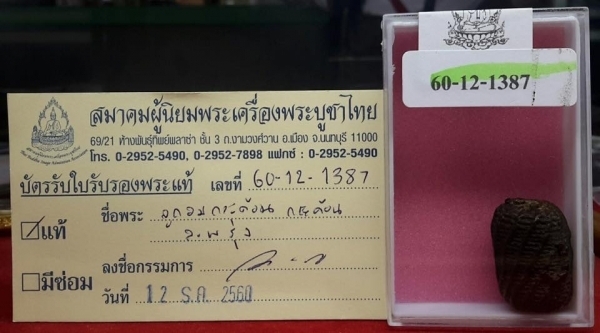 สมาคมผู้นิยมพระเครื่องพระบูชาไทย
69/21 ห้างพันธุ์ทิพย์พลาซ่า ชั้น 3 ถ.งามวงศ์วาน อ.เมือง จ.นนทบุรี 11000
โทร. 0-2952-5490, 0-2952-7898 แฟกซ์ : 0-2952-5490
บัตรรับใบรับรองพระแท้ เลขที่ 60-12-1387
☑แท้ ชื่อพระ ลูกอม
ลงชื่อกรรมการ
☐มีซ่อม
วันที่ 12 ธ.ค. 2560
60-12-1387